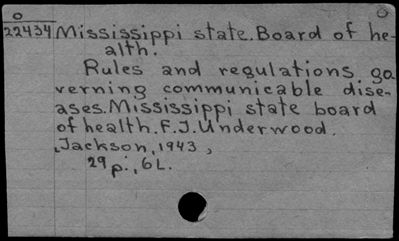 O
22434 Mississippi state. Board of he-
alth.
Rules and regulations go
verning communicable dise-
ases. Mississippi state board
of health. F. J. Underwood.
Jackson, 1943,
29 p., 6 L.